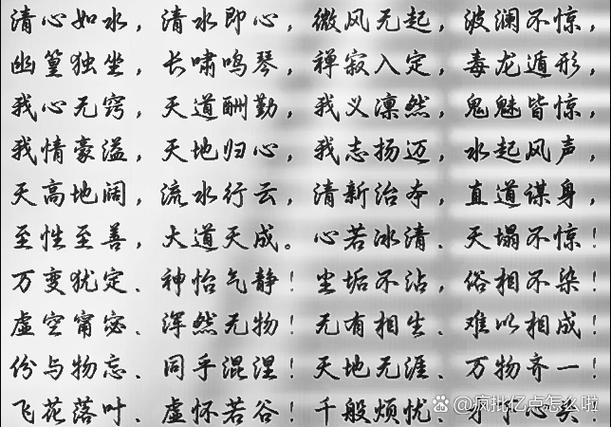 清心如水，清水即心，微风无起，波澜不惊，
幽篁独坐，长啸鸣琴，禅寂入定，毒龙遁形，
我心无窍，天道酬勤，我义凛然，鬼魅皆惊，
我情豪溢，天地归心，我志扬迈，水起风声，
天高地阔，流水行云，清新治本，直道谋身，
至性至善，大道天成。心若冰清、天塌不惊！
万变犹定、神怡气静！尘垢不沾，俗相不染！
虚空甯宓、浑然无物！无有相生、难以相成！
份与物忘、同乎混涅！天地无涯、万物齐一！
飞花落叶、虚怀若谷！千般烦忧、才下心头！
疯批亿点怎么啦